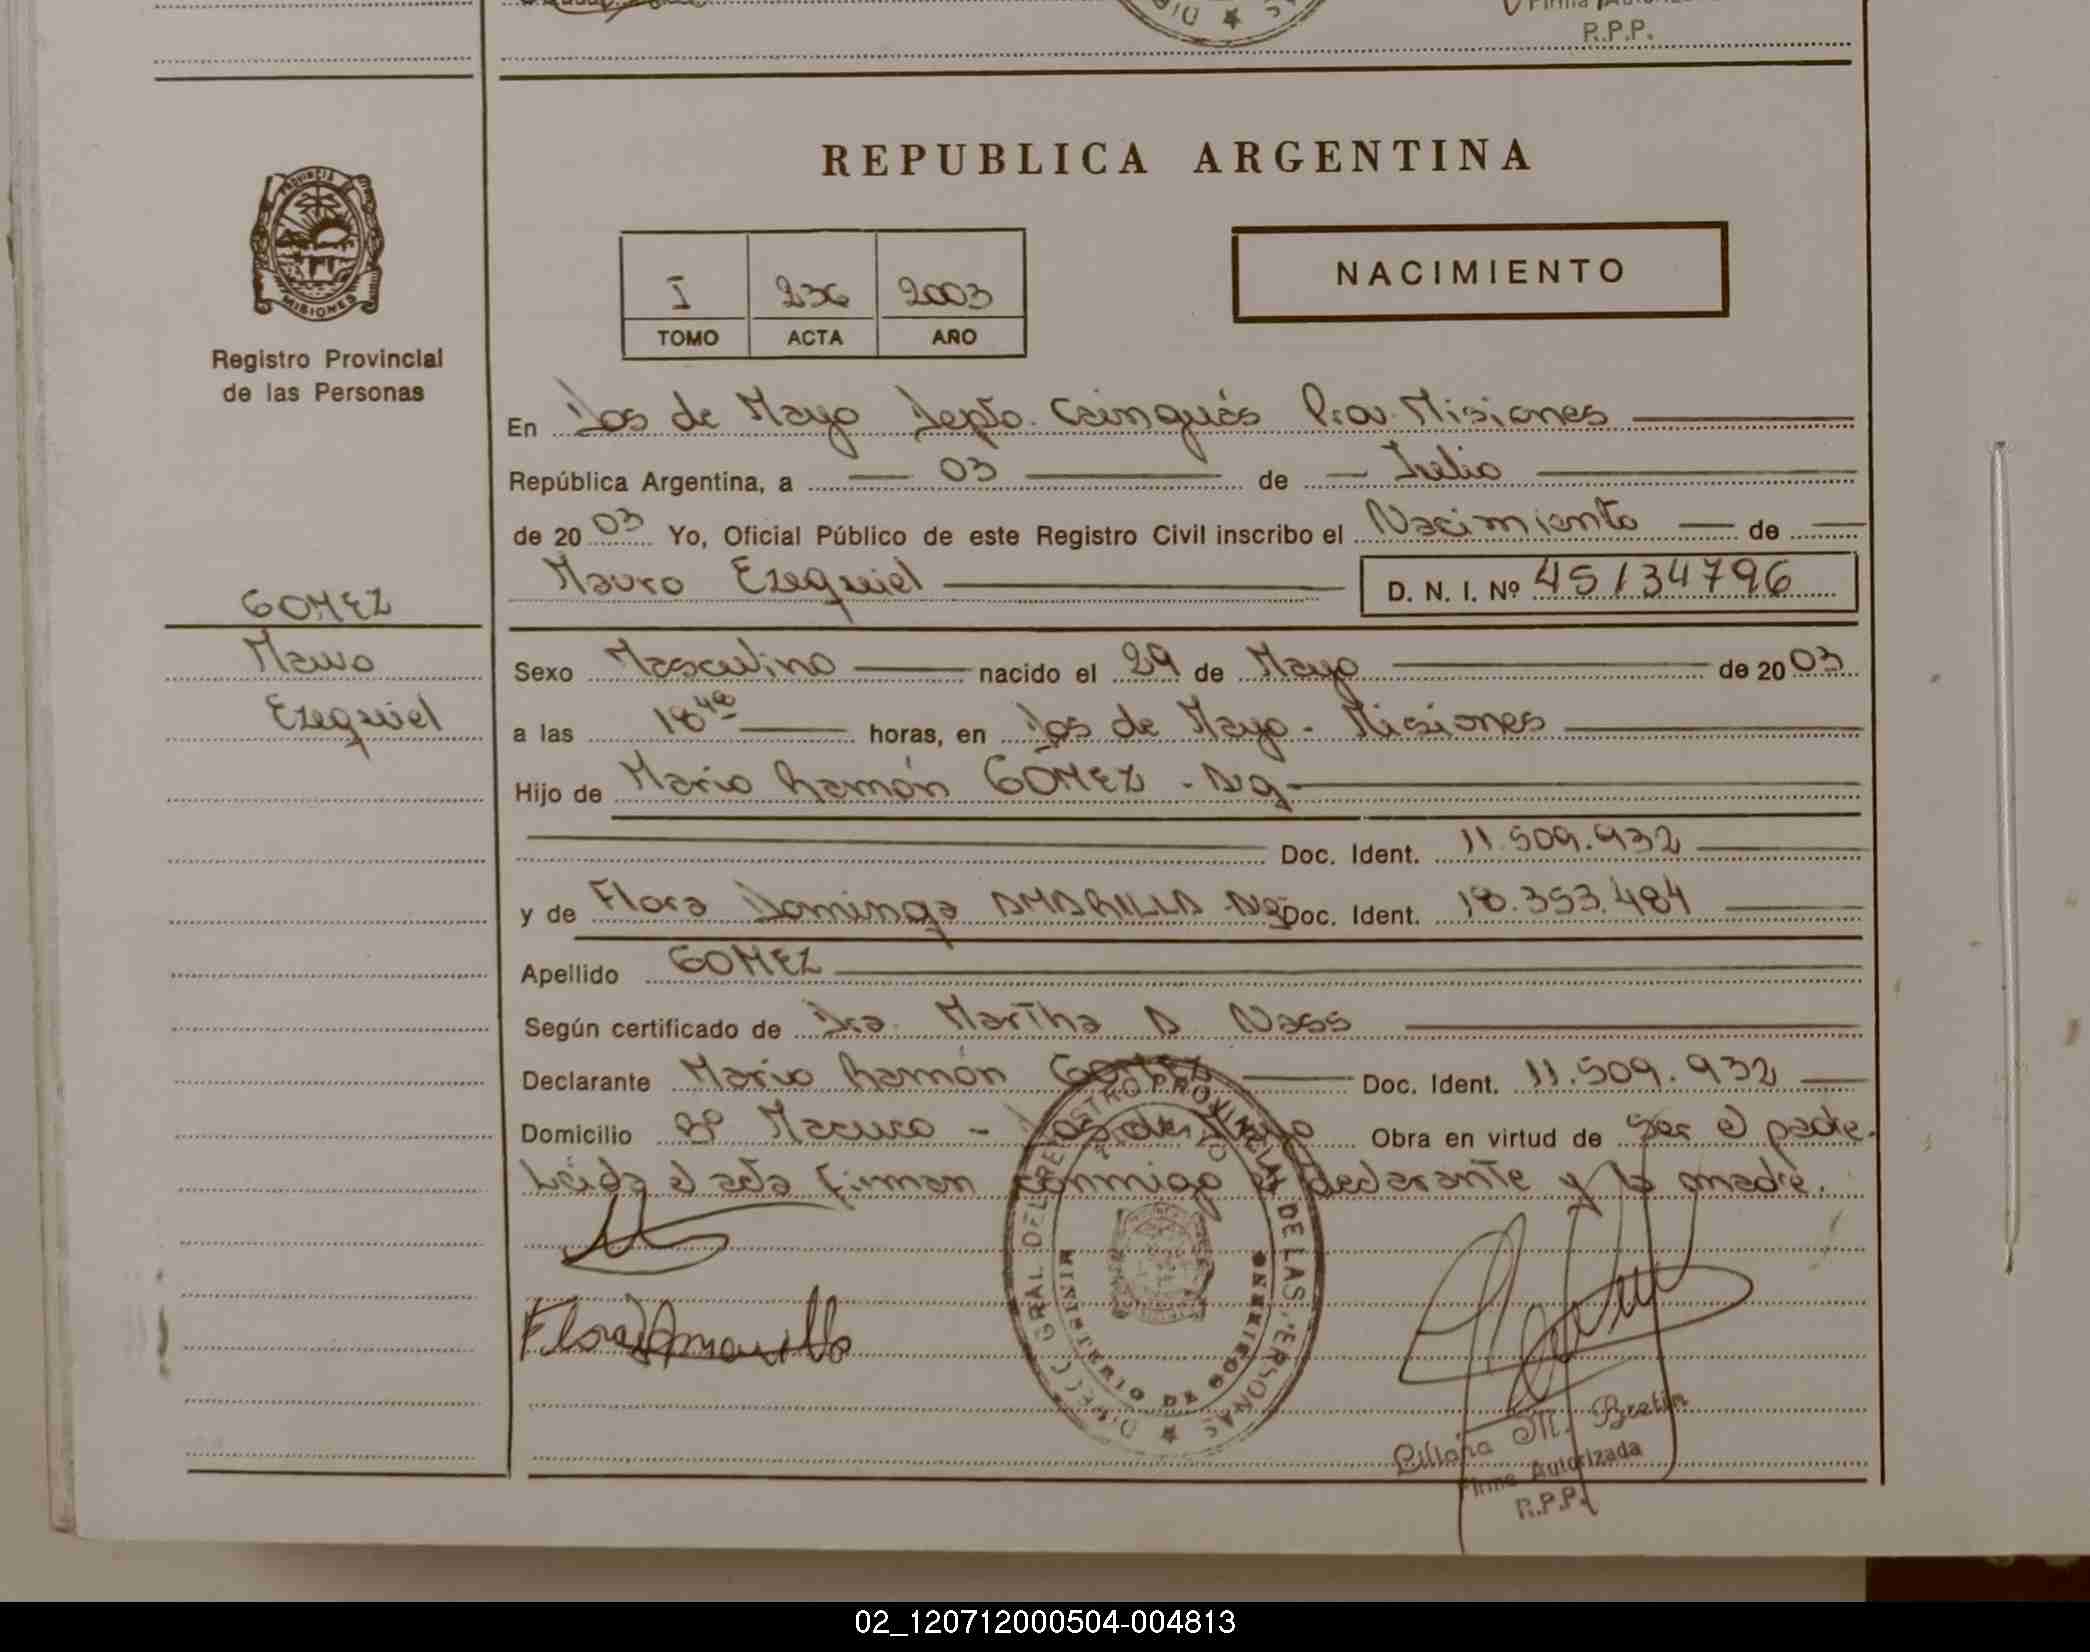 Firma Autoriz
R.P.P.
REPUBLICA ARGENTINA
PROVINCIA DE
MISIONES
Registro Provincial
de las Personas
I 236 2003
TOMO ACTA AÑO
NACIMIENTO
En Dos de Mayo Depto. Cainguás Prov. Misiones
República Argentina, a 03 de Julio
de 20 03 Yo, Oficial Público de este Registro Civil inscribo el Nacimiento de
Mauro Ezequiel D. N. I. Nº 45134796
GOMEZ
Mauro
Ezequiel
Sexo Masculino nacido el 29 de Mayo de 20 03
a las 18 40 horas, en Dos de Mayo - Misiones
Hijo de Mario Ramón GOMEZ - Arg
Doc. Ident. 11.509.932
y de Flora Dominga AMARILLA Arg Doc. Ident. 18.353.484
Apellido GOMEZ
Según certificado de Dra. Martha A. Nass
Declarante Mario Ramón GOMEZ Doc. Ident. 11.509.932
Domicilio Bº Macuco - Dos de Mayo Obra en virtud de Ser el padre.
Leída el acta firman conmigo el declarante y la madre.
Flora Amarilla
DIRECC. GRAL. DEL REGISTRO PROVINCIAL DE LAS PERSONAS
MINISTERIO DE GOBIERNO
Liliana M. Bretin
Firma Autorizada
R.P.P.
02_120712000504-004813